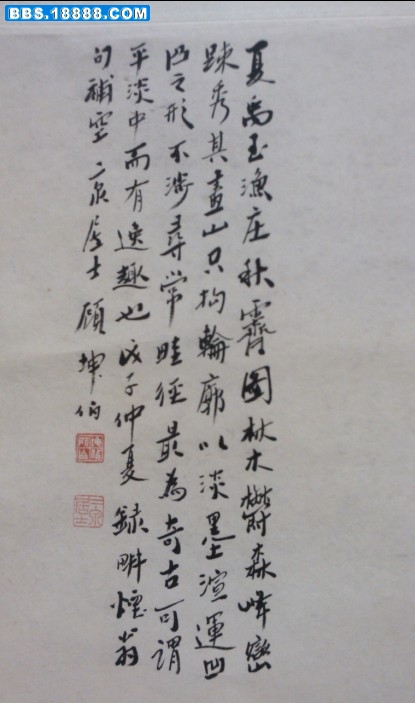 BBS.18888.COM
夏禹玉漁庄秋霽圖林木欝森峰巒
踈秀其畫山只抅輪廓以淡墨渲運凹
凸之形不涉尋常畦徑最為奇古可謂
平淡中而有逸趣也戊子仲夏録畊煙翁
句補空二泉居士顧坤伯